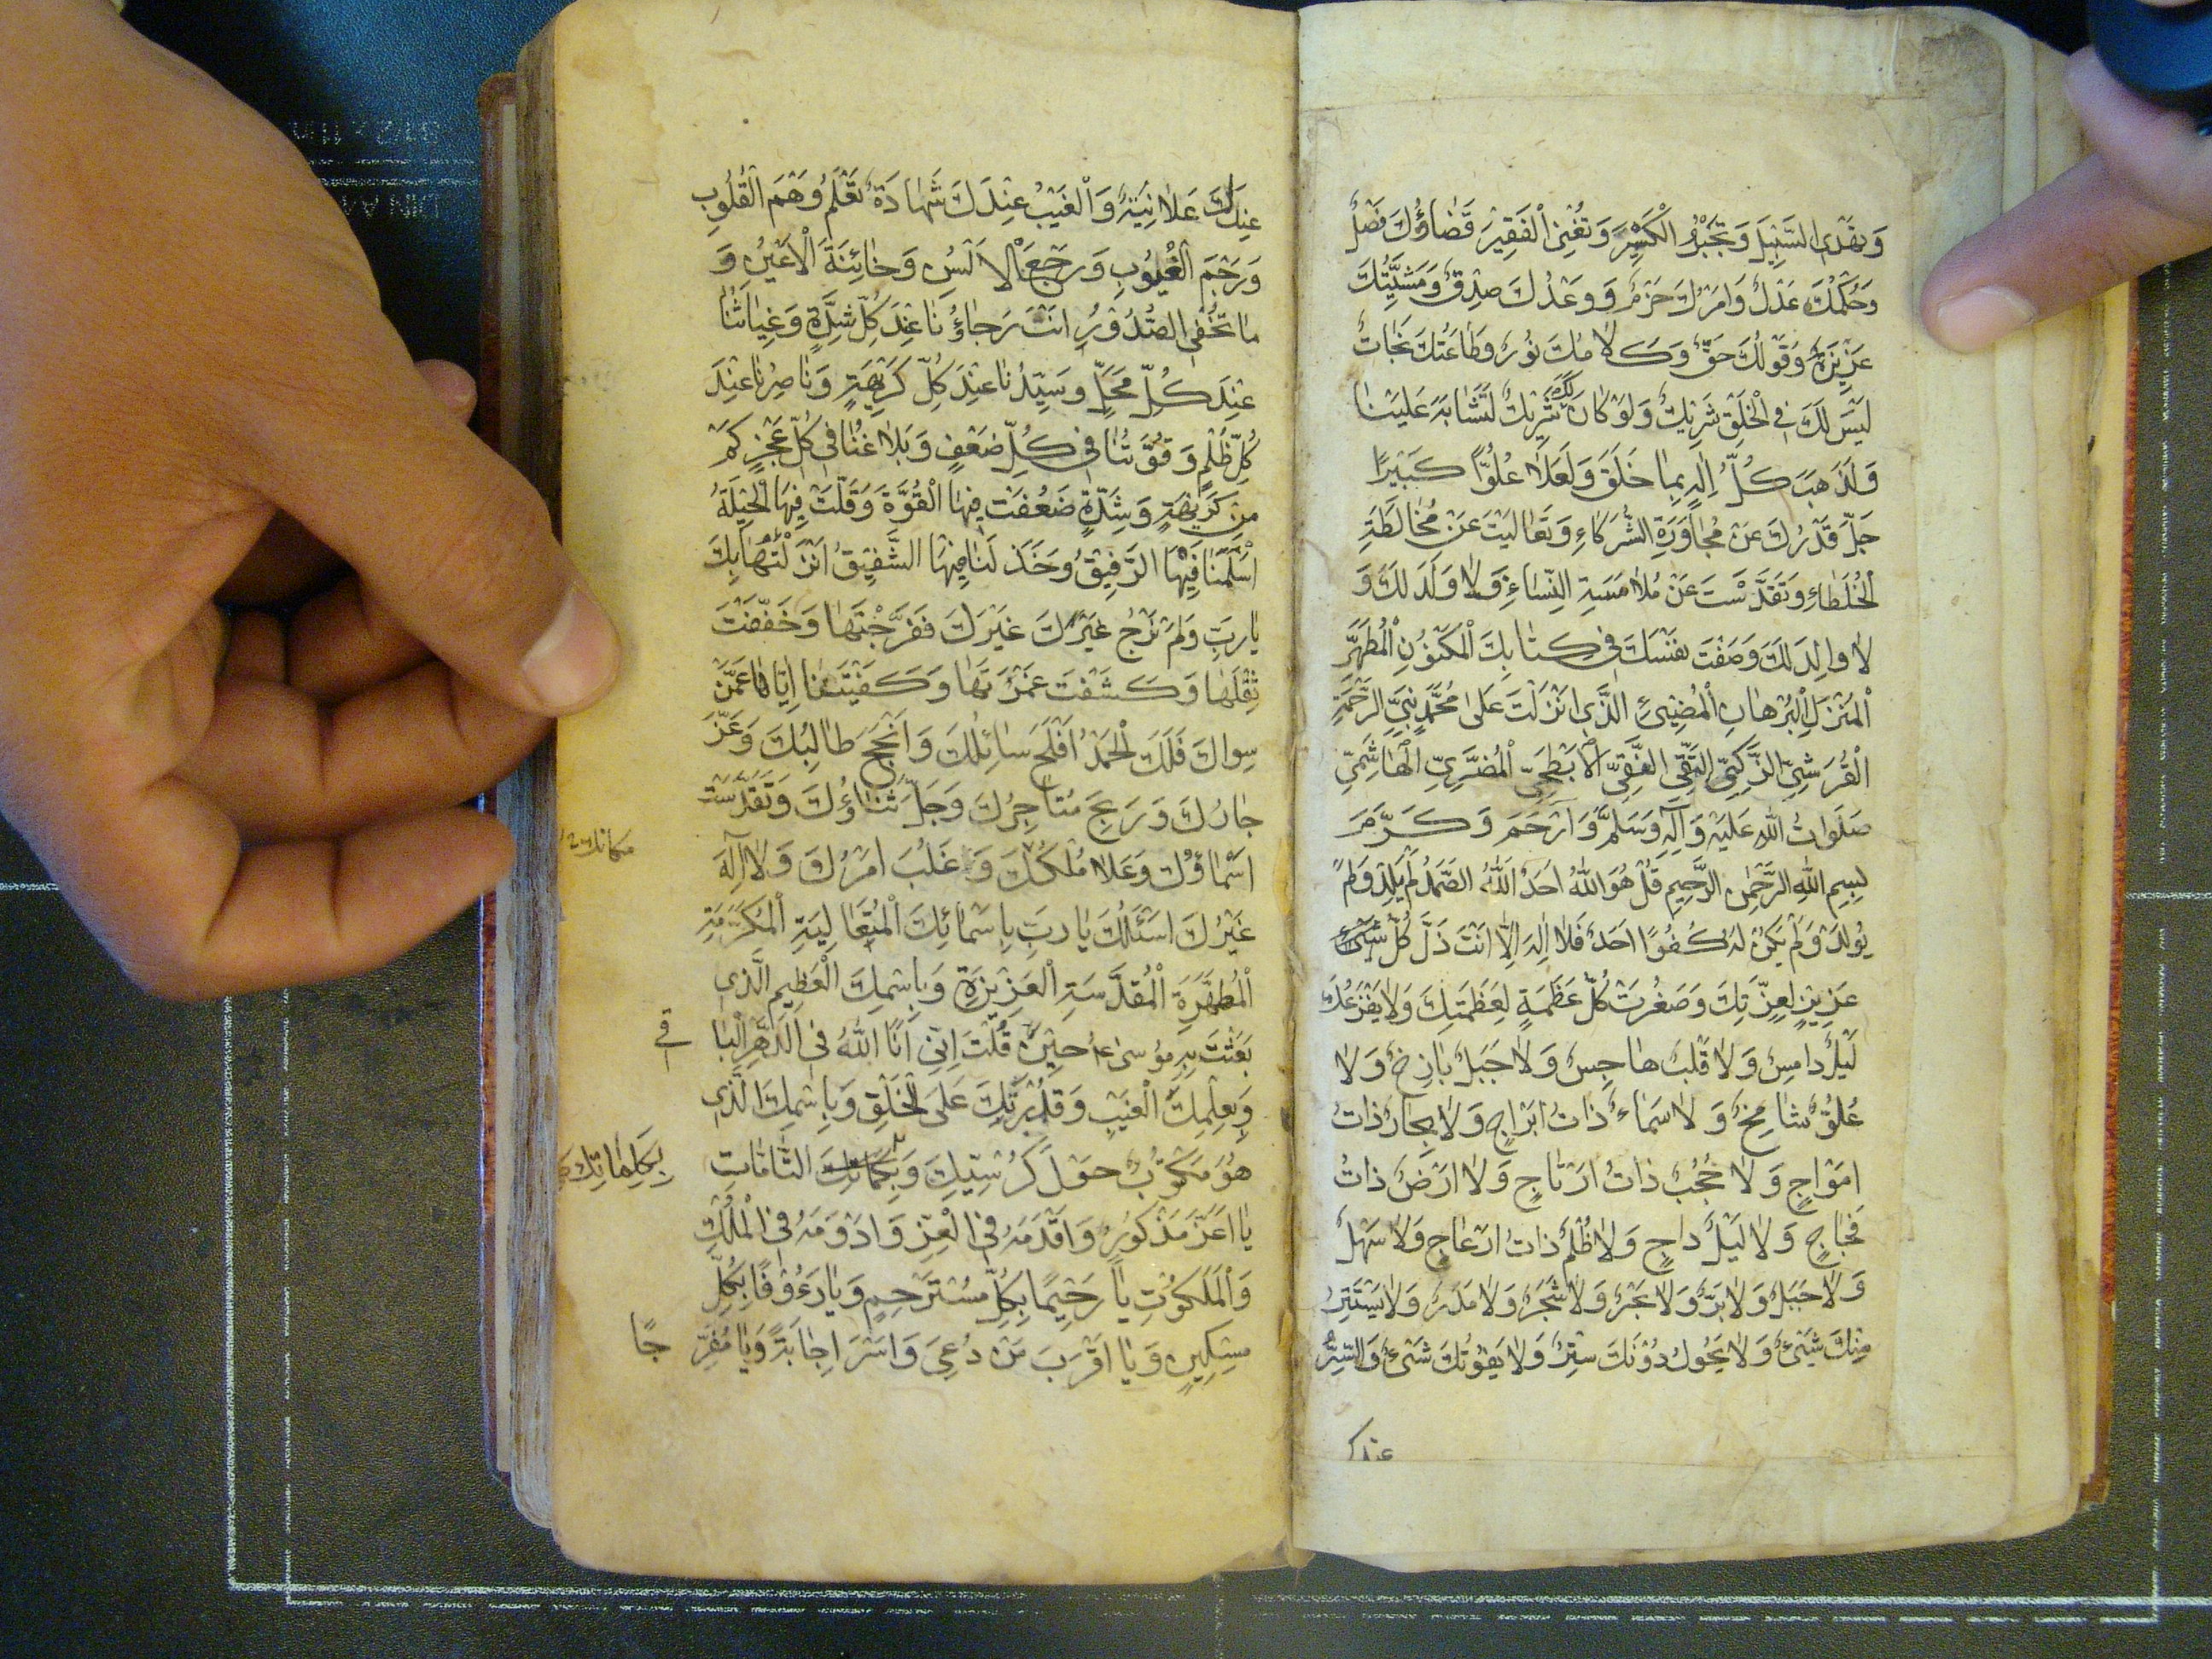 وَتَهْدِي السَّبِيلَ وَتَجْبُرُ الْكَسِيرَ وَتُغْنِي الْفَقِيرَ قَضَاؤُكَ فَضْلٌ
وَحُكْمُكَ عَدْلٌ وَاَمْرُكَ حَزْمٌ وَوَعْدُكَ صِدْقٌ وَمَشِيَّتُكَ
عَزِيزَةٌ وَقَوْلُكَ حَقٌّ وَكَلَامُكَ نُورٌ وَطَاعَتُكَ نَجَاتٌ
لَيْسَ لَكَ فِي الْخَلْقِ شَرِيكٌ وَلَوْ كَانَ لَكَ شَرِيكٌ لَتَشَابَهَ عَلَيْنَا
وَلَذَهَبَ كُلُّ اِلٰهٍ بِمَا خَلَقَ وَلَعَلَا عُلُوًّا كَبِيرًا
جَلَّ قَدْرُكَ عَنْ مُجَاوَرَةِ الشُّرَكَاءِ وَتَعَالَيْتَ عَنْ مُخَالَطَةِ
الْخُلَطَاءِ وَتَقَدَّسْتَ عَنْ مُلَامَسَةِ النِّسَاءِ وَلَا وَلَدَ لَكَ وَ
لَا وَالِدَ لَكَ وَصَفْتَ نَفْسَكَ فِي كِتَابِكَ الْمَكْنُونِ الْمُطَهَّرِ
الْمُنْزَلِ الْبُرْهَانِ الْمُضِيئِ الَّذِي اَنْزَلْتَ عَلَى مُحَمَّدٍ نَبِيِّ الرَّحْمَةِ
الْقُرَشِيِّ الزَّكِيِّ التَّقِيِّ النَّقِيِّ الْاَبْطَحِيِّ الْمُضَرِيِّ الْهَاشِمِيِّ
صَلَوَاتُ اللهِ عَلَيْهِ وَآلِهِ وَسَلَّمَ وَارْحَمَ وَكَرَّمَ
بِسْمِ اللهِ الرَّحْمٰنِ الرَّحِيمِ قُلْ هُوَ اللهُ اَحَدٌ اَللهُ الصَّمَدُ لَمْ يَلِدْ وَلَمْ
يُولَدْ وَلَمْ يَكُنْ لَهُ كُفُوًا اَحَدٌ فَلَا اِلٰهَ اِلَّا اَنْتَ ذَلَّ كُلُّ شَيْءٍ
عَزِيزٍ لِعِزَّتِكَ وَصَغُرَتْ كُلُّ عَظَمَةٍ لِعَظَمَتِكَ وَلَا يَفْزَعُكَ
لَيْلٌ دَامِسٌ وَلَا قَلْبٌ هَاجِسٌ وَلَا جَبَلٌ بَاذِخٌ وَلَا
عُلُوٌّ شَامِخٌ وَلَا سَمَاءٌ ذَاتُ اَبْرَاجٍ وَلَا بِحَارٌ ذَاتُ
اَمْوَاجٍ وَلَا حُجُبٌ ذَاتُ اَرْتَاجٍ وَلَا اَرْضٌ ذَاتُ
فِجَاجٍ وَلَا لَيْلٌ دَاجٍ وَلَا ظُلَمٌ ذَاتُ اَدْعَاجٍ وَلَا سَهْلٌ
وَلَا جَبَلٌ وَلَا بَرٌّ وَلَا بَحْرٌ وَلَا شَجَرٌ وَلَا مَدَرٌ وَلَا يَسْتَتِرُ
مِنْكَ شَيْءٌ وَلَا يَحُولُ دُونَكَ سِتْرٌ وَلَا يَفُوتُكَ شَيْءٌ وَالسِّرُّ
عندك
عِنْدَكَ عَلَانِيَةٌ وَالْغَيْبُ عِنْدَكَ شَهَادَةٌ تَعْلَمُ وَهْمَ الْقُلُوبِ
وَرَجْمَ الْغُيُوبِ وَرَجْعَ الْاَلْسُنِ وَخَائِنَةَ الْاَعْيُنِ وَ
مَا تُخْفِي الصُّدُورُ اَنْتَ رَجَاؤُنَا عِنْدَ كُلِّ شِدَّةٍ وَغِيَاثُنَا
عِنْدَ كُلِّ مَحَلٍّ وَسَيِّدُنَا عِنْدَ كُلِّ كَرِيهَةٍ وَنَاصِرُنَا عِنْدَ
كُلِّ ظُلْمٍ وَقُوَّتُنَا فِي كُلِّ ضَعْفٍ وَبَلَاغُنَا فِي كُلِّ عَجْزٍ كَمْ
مِنْ كَرِيهَةٍ وَشِدَّةٍ ضَعُفَتْ فِيهَا الْقُوَّةُ وَقَلَّتْ فِيهَا الْحِيلَةُ
اَسْلَمَنَا فِيهَا الرَّفِيقُ وَخَذَلَنَا فِيهَا الشَّفِيقُ اَنْزَلْتُهَا بِكَ
يَا رَبِّ وَلَمْ نَرْجُ غَيْرَكَ غَيْرَكَ فَفَرَّجْتَهَا وَخَفَّفْتَ
ثِقْلَهَا وَكَشَفْتَ غَمْرَتَهَا وَكَفَيْتَنَا اِيَّاهَا عَمَّنْ
سِوَاكَ فَلَكَ الْحَمْدُ اَفْلَحَ سَائِلُكَ وَاَنْجَحَ طَالِبُكَ وَعَزَّ
جَارُكَ وَرَبِحَ مُتَاجِرُكَ وَجَلَّ ثَنَاؤُكَ وَتَقَدَّسَتْ
اَسْمَاؤُكَ وَعَلَا مُلْكُكَ وَغَلَبَ اَمْرُكَ وَلَا اِلٰهَ
غَيْرُكَ اَسْئَلُكَ يَا رَبِّ بِاَسْمَائِكَ الْمُتَعَالِيَةِ الْمُكَرَّمَةِ
الْمُطَهَّرَةِ الْمُقَدَّسَةِ الْعَزِيزَةِ وَبِاسْمِكَ الْعَظِيمِ الَّذِي
بَعَثْتَ بِهِ مُوسَى حِينَ قُلْتَ اِنِّي اَنَا اللهُ فِي الدَّهْرِ الْبَا
قي
وَبِعِلْمِكَ الْغَيْبَ وَقُدْرَتِكَ عَلَى الْخَلْقِ وَبِاسْمِكَ الَّذِي
هُوَ مَكْتُوبٌ حَوْلَ كُرْسِيِّكَ وَبِكَلِمَاتِكَ التَّامَّاتِ
بِكَلِمَاتِكَ
يَا اَعَزَّ مَذْكُورٍ وَاَقْدَمَهُ فِي الْعِزِّ وَاَدْوَمَهُ فِي الْمُلْكِ
وَالْمَلَكُوتِ يَا رَحِيمًا بِكُلِّ مُسْتَرْحِمٍ وَيَا رَءُوفًا بِكُلِّ
مِسْكِينٍ وَيَا اَقْرَبَ مَنْ دُعِيَ وَاَسْرَ اِجَابَةً وَيَا مُفَرِّ جًا